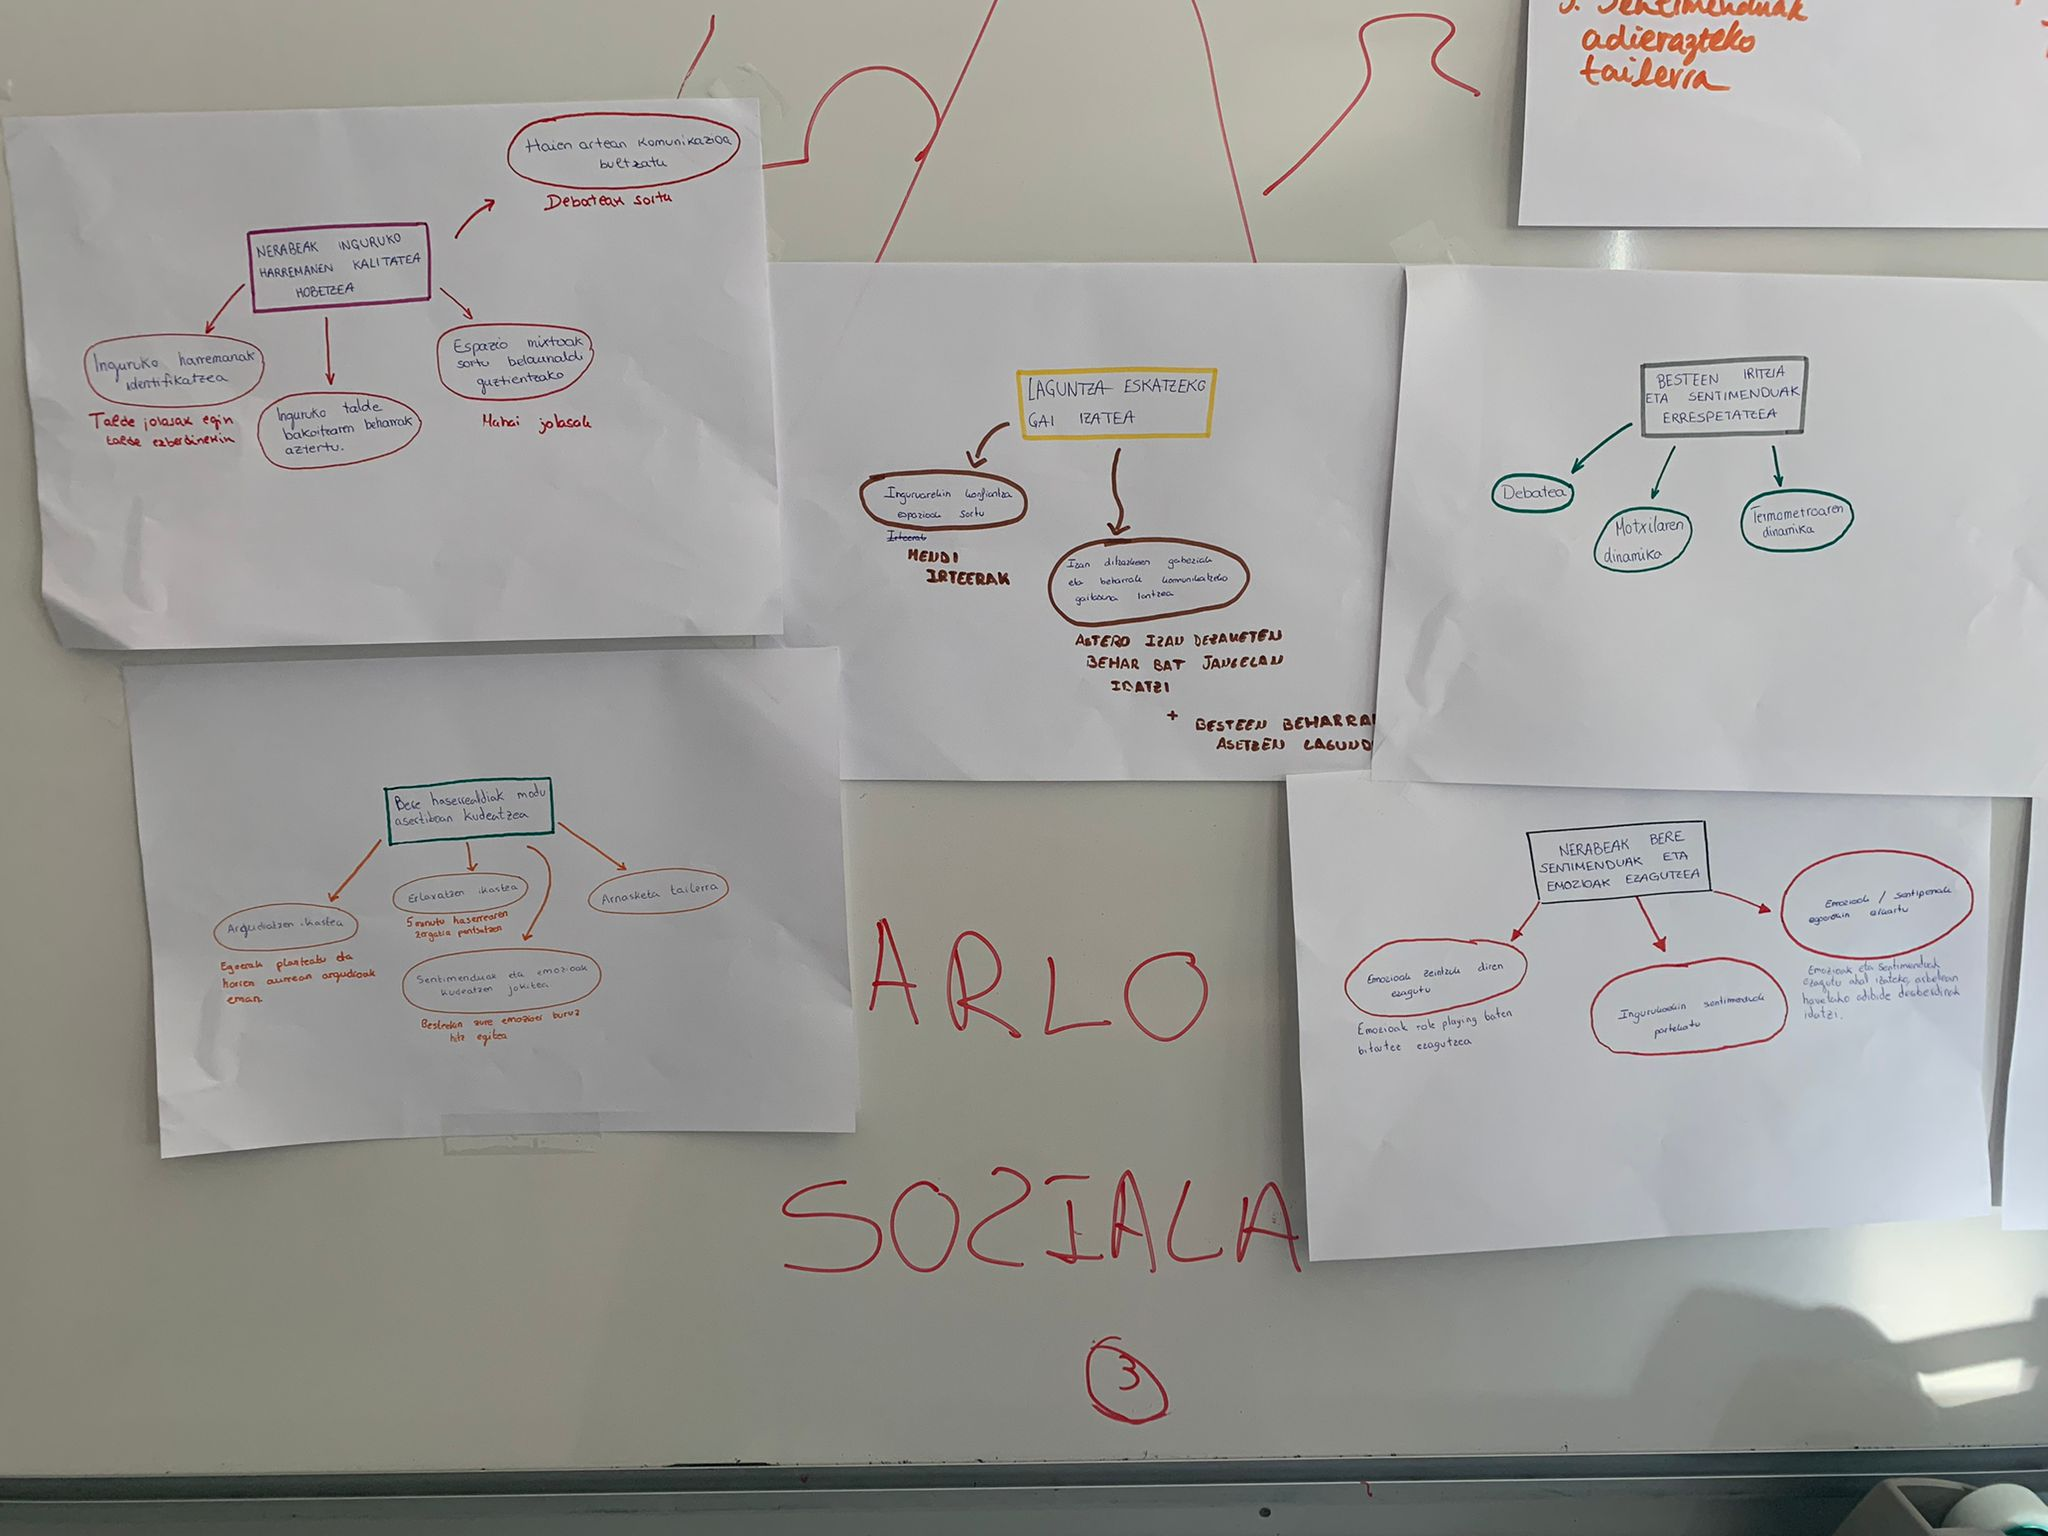 3. Sentimenduak
adierazteko
tailerra
Haien artean komunikazioa
bultzatu
Debateak sortu
NERABEAK INGURUKO
HARREMANEN KALITATEA
HOBETZEA
Inguruko harremanak
identifikatzea
Talde jolasak egin
talde ezberdinekin
Inguruko talde
bakoitzaren beharrak
aztertu.
Espazio mixtoak
sortu belaunaldi
guztientzako
Mahai jolasak
LAGUNTZA ESKATZEKO
GAI IZATEA
Inguruarekin konfiantza
espazioak sortu
Irteerak
MENDI
IRTEERAK
Izan ditzazkeen gabeziak
eta beharrak komunikatzeko
gaitasuna lantzea
ASTERO IZAN DEZAKETEN
BEHAR BAT JANGELAN
IDATZI
+
BESTEEN BEHARRA
ASETZEN LAGUND
BESTEEN IRITZIA
ETA SENTIMENDUAK
ERRESPETATZEA
Debatea
Motxilaren
dinamika
Termometroaren
dinamika
Bere haserrealdiak modu
asertiboan kudeatzea
Argudiatzen ikastea
Egoerak planteatu eta
horren aurrean argudioak
eman.
Erlaxatzen ikastea
5 minutu haserrearen
zergatia pentsatzen
Sentimenduak eta emozioak
kudeatzen jakitea
Besteekin zure emozioei buruz
hitz egitea
Arnasketa tailerra
NERABEAK BERE
SENTIMENDUAK ETA
EMOZIOAK EZAGUTZEA
Emozioak zeintzuk diren
ezagutu
Emozioak role playing baten
bitartez ezagutzea
Ingurukoekin sentimenduak
partekatu
Emozioak / sentipenak
egoerekin elkartu
Emozioak eta sentimenduak
ezagutu ahal izateko, arbelean
hauetako adibide desberdinak
idatzi.
ARLO
SOZIALA
3